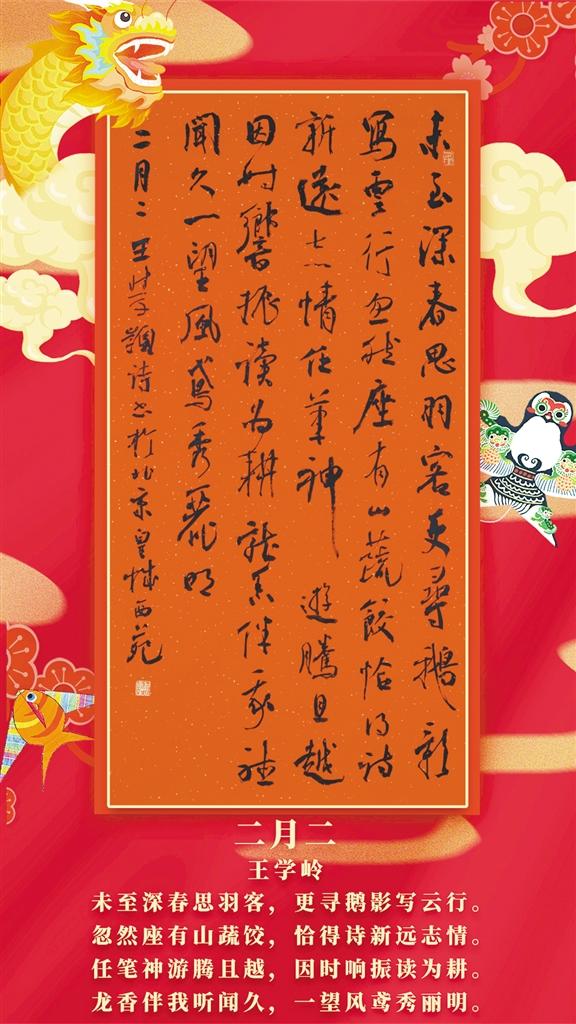 未至深春思羽客更尋鵝影
寫雲行忽然座有山蔬餃恰得詩
新遠志情任筆神遊騰且越
因时響振讀为耕龍香伴我聽
聞久一望風鳶秀麗明
二月二王学岭題诗书於北京皇城西苑
二月二
王学岭
未至深春思羽客，更寻鹅影写云行。
忽然座有山蔬饺，恰得诗新远志情。
任笔神游腾且越，因时响振读为耕。
龙香伴我听闻久，一望风鸢秀丽明。